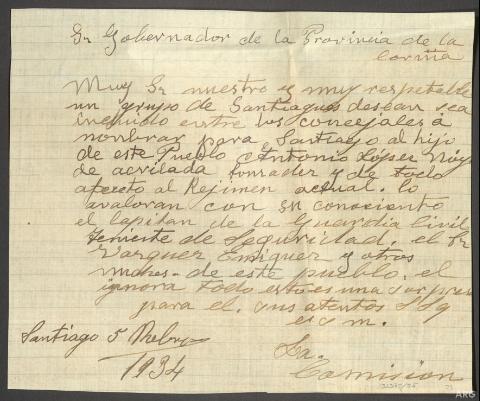 Sr Gobernador de la Provincia de la
Coruña
Muy Sr nuestro y muy respetable
un grupo de Santiagues desean sea
incluido entre los concejales á
nombrar para Santiago al hijo
de este Pueblo Antonio López
de acrilada honrader y de todo
afecto al Rejimen actual. lo
avaloran con su
el Capitan de la Guardia Civil
Teniente de Seguridad. el Sr
Varquer Enriquer y otros
de este pueblo. el
ignora todo esto es una sorpresa
para el. sus atentos
Santiago 5
1934
La
Comision
ARG